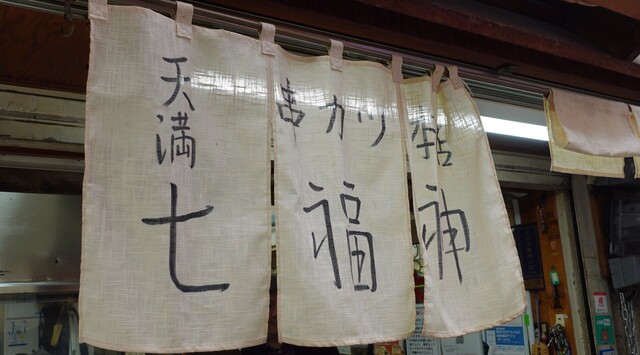 天満
串カツ
本店
七福神